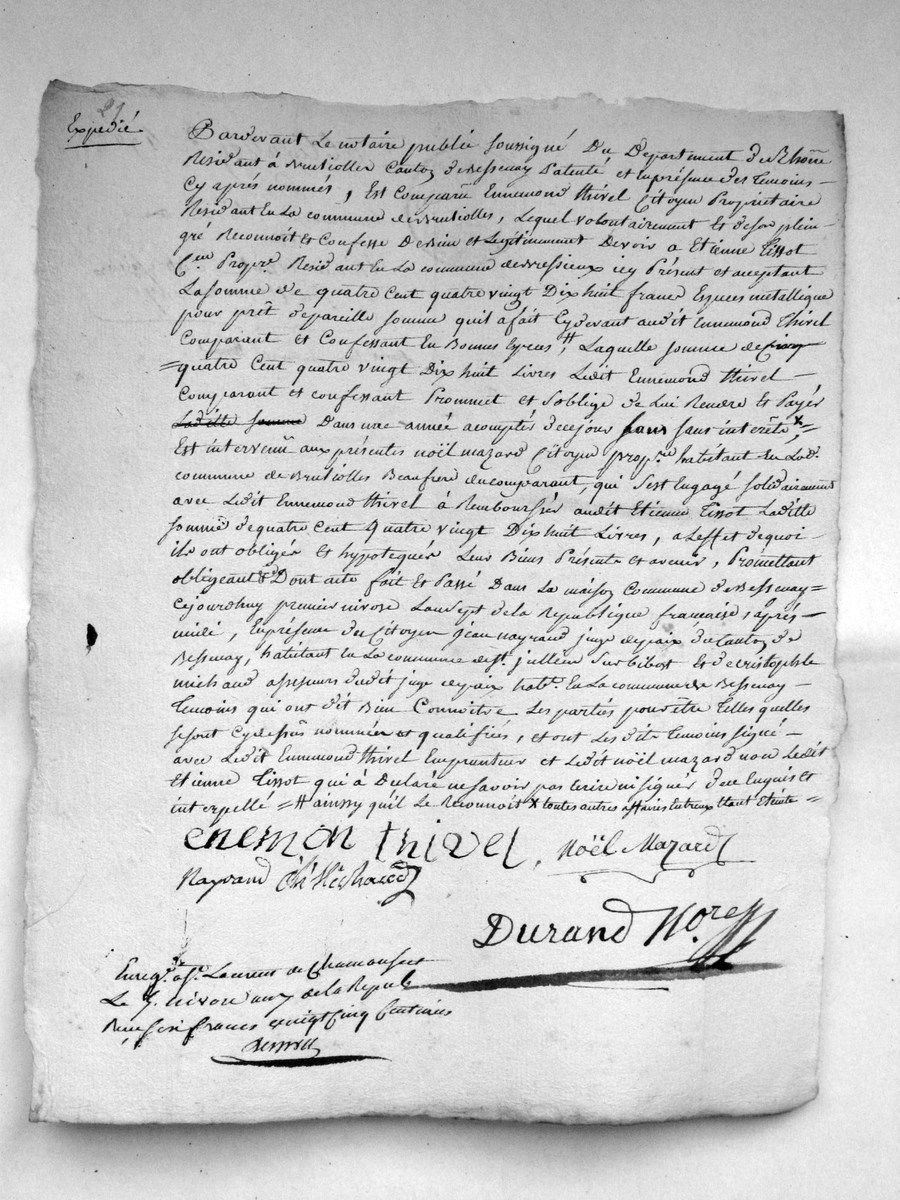 21
Expedié
Pardevant Le notaire public soussigné Du Departement de Rhône
Residant à Brussiolles Canton de Bessenay Patenté et en présence des temoins
Cy après nommés, Est Comparu Ennemond thivel Citoyen Propriétaire
Residant En La commune de Brussiolles, Lequel volontairement et de son plein
gré Reconnoit et Confesse De Bien et Legitimement Devoir a Etienne Tissot
Cen Propre. Residant En La commune de Bressieux icy Présent et acceptant
La somme de quatre Cent quatre vingt Dix huit francs Especes metallique
pour prêt de pareille somme qu'il a fait Cy devant audit Ennemond Thivel
Comparant et Confessant En Bonnes Espèces # Laquelle somme de cinq
= quatre Cent quatre vingt Dix huit Livres Ledit Ennemond thivel
Comparant et confessant Promet et s'oblige de Lui Rendre Et Payer
La ditte somme Dans une année a comptés de ce jour sans sans interêts x =
Est intervenû aux présentes noël mazard Citoyen propre. habitant En Lad.
commune de Brussiolles Beaufrere du comparant, qui s'est Engagé solidairement
avec Ledit Ennemond thivel à Rembourser audit Etienne Tissot Laditte
somme de quatre Cent Quatre vingt Dix huit Livres, a L'effet de quoi
ils ont obligés et hypotequés Leur Biens Présents et avenir, Promettant
obligeant & Dont acte fait et Passé Dans La maison Commune de Bessenay =
Cejourdhuy premier nivose L'an sept de la Republique francaise, après
midi, En présence du Citoyen jean nayrand juge de paix du Canton de
Bessenay, habitant En La commune de st jullien sur bibost Et de cristophle
michaud assesseur dudit juge de paix habt. En La commune de Bessenay
Temoins qui ont dit Bien Connoitre Les parties pour être Telles quelles
se sont Cy dessus nommées et qualifiées, et ont Les dits temoins signé
avec Ledit Ennemond thivel Emprunteur et Ledit noël mazard non Ledit
Etienne Tissot qui à Declaré ne savoir pas Ecrire ni signer de ce Enquis et
interpellé = # ainssy qu'il Le Reconnoit x toutes autres affaires Entreux Etant Eteinte =
Enemon thivel, Noël Mazard
Nayrand
Durand Nore
Enregt. a St. Laurent de Chamousset
Le 7. nivose an 7 de la Republ
Reçu six francs vingt Cinq Centimes